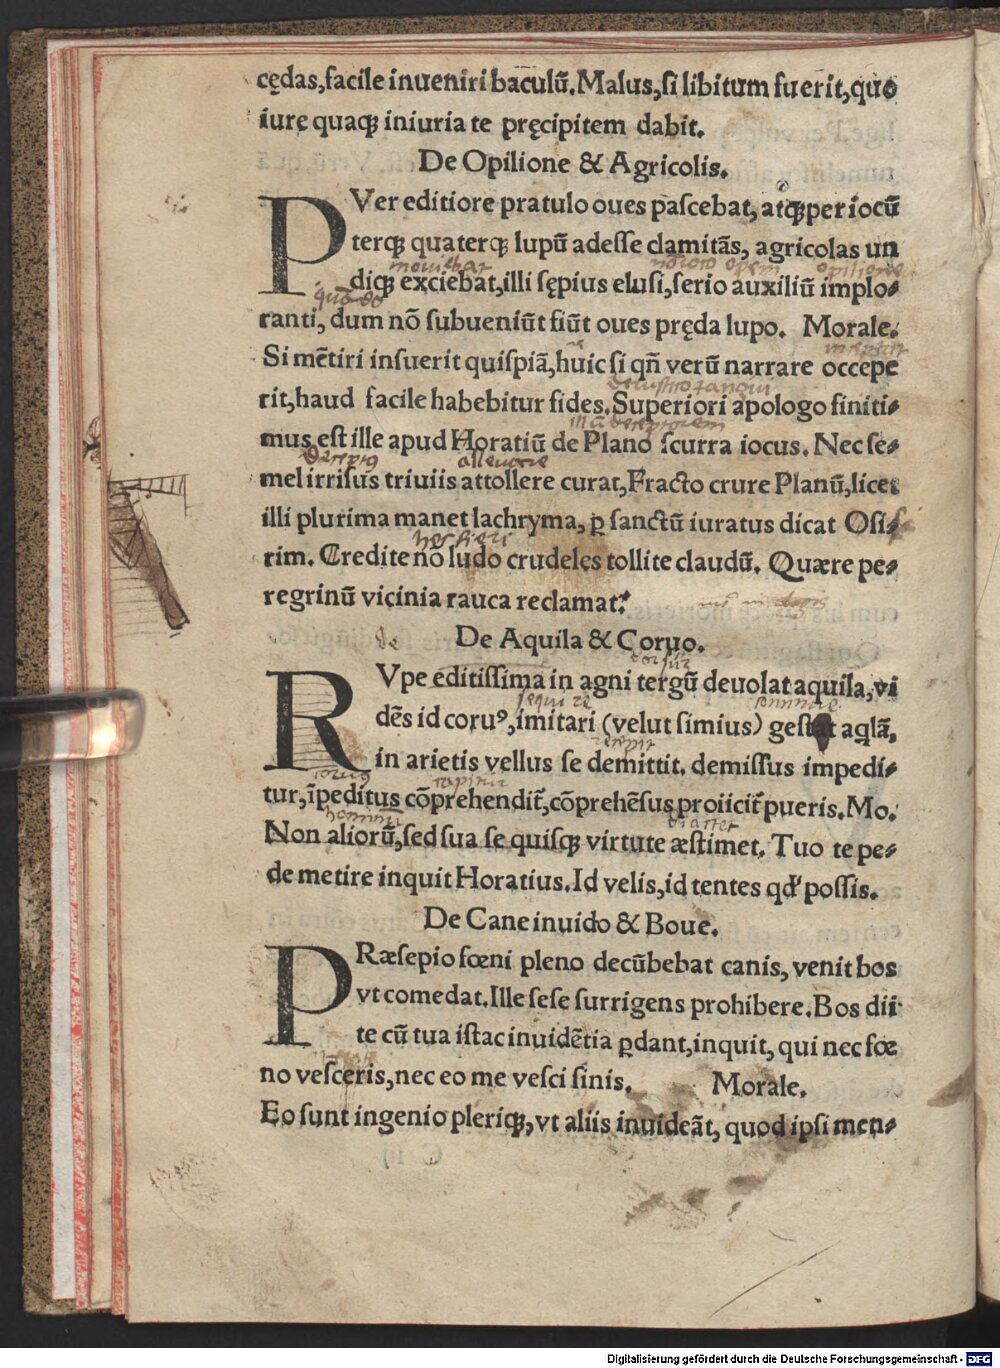 cędas, facile inueniri baculū. Malus, si libitum fuerit, quo
iure quaqꝫ iniuria te pręcipitem dabit.
De Opilione & Agricolis.
PVer editiore pratulo oues pascebat, atqꝫ per iocū
terqꝫ quaterqꝫ lupū adesse clamitās, agricolas un
diqꝫ exciebat, illi sępius elusi, serio auxiliū implo⸗
ranti, dum nō subueniūt fiūt oues pręda lupo. Morale.
Si mētiri insuerit quispiā, huic si qñ verū narrare occepe
rit, haud facile habebitur fides. Superiori apologo finiti⸗
mus est ille apud Horatiū de Plano scurra iocus. Nec se⸗
mel irrisus triuiis attollere curat, Fracto crure Planū, licet
illi plurima manet lachryma, ꝑ sanctū iuratus dicat Osi⸗
rim. Credite nō ludo crudeles tollite claudū. Quære pe⸗
regrinū vicinia rauca reclamat.
De Aquila & Coruo.
RVpe editissima in agni tergū deuolat aquila, vi
dēs id coruꝰ, imitari (velut simius) gestat aqlā,
in arietis vellus se demittit. demissus impedi⸗
tur, īpeditus cōprehendit̃, cōprehēsus proiicit̃ pueris. Mo.
Non aliorū, sed sua se quisqꝫ virtute æstimet. Tuo te pe⸗
de metire inquit Horatius. Id velis, id tentes qd' possis.
De Cane inuido & Boue.
PRæsepio fœni pleno decūbebat canis, venit bos
vt comedat. Ille sese surrigens prohibere. Bos dii
te cū tua istac inuidētia ꝑdant, inquit, qui nec fœ
no vesceris, nec eo me vesci sinis. Morale.
Eo sunt ingenio pleriqꝫ, vt aliis inuideāt, quod ipsi men⸗
Digitalisierung gefördert durch die Deutsche Forschungsgemeinschaft - DFG